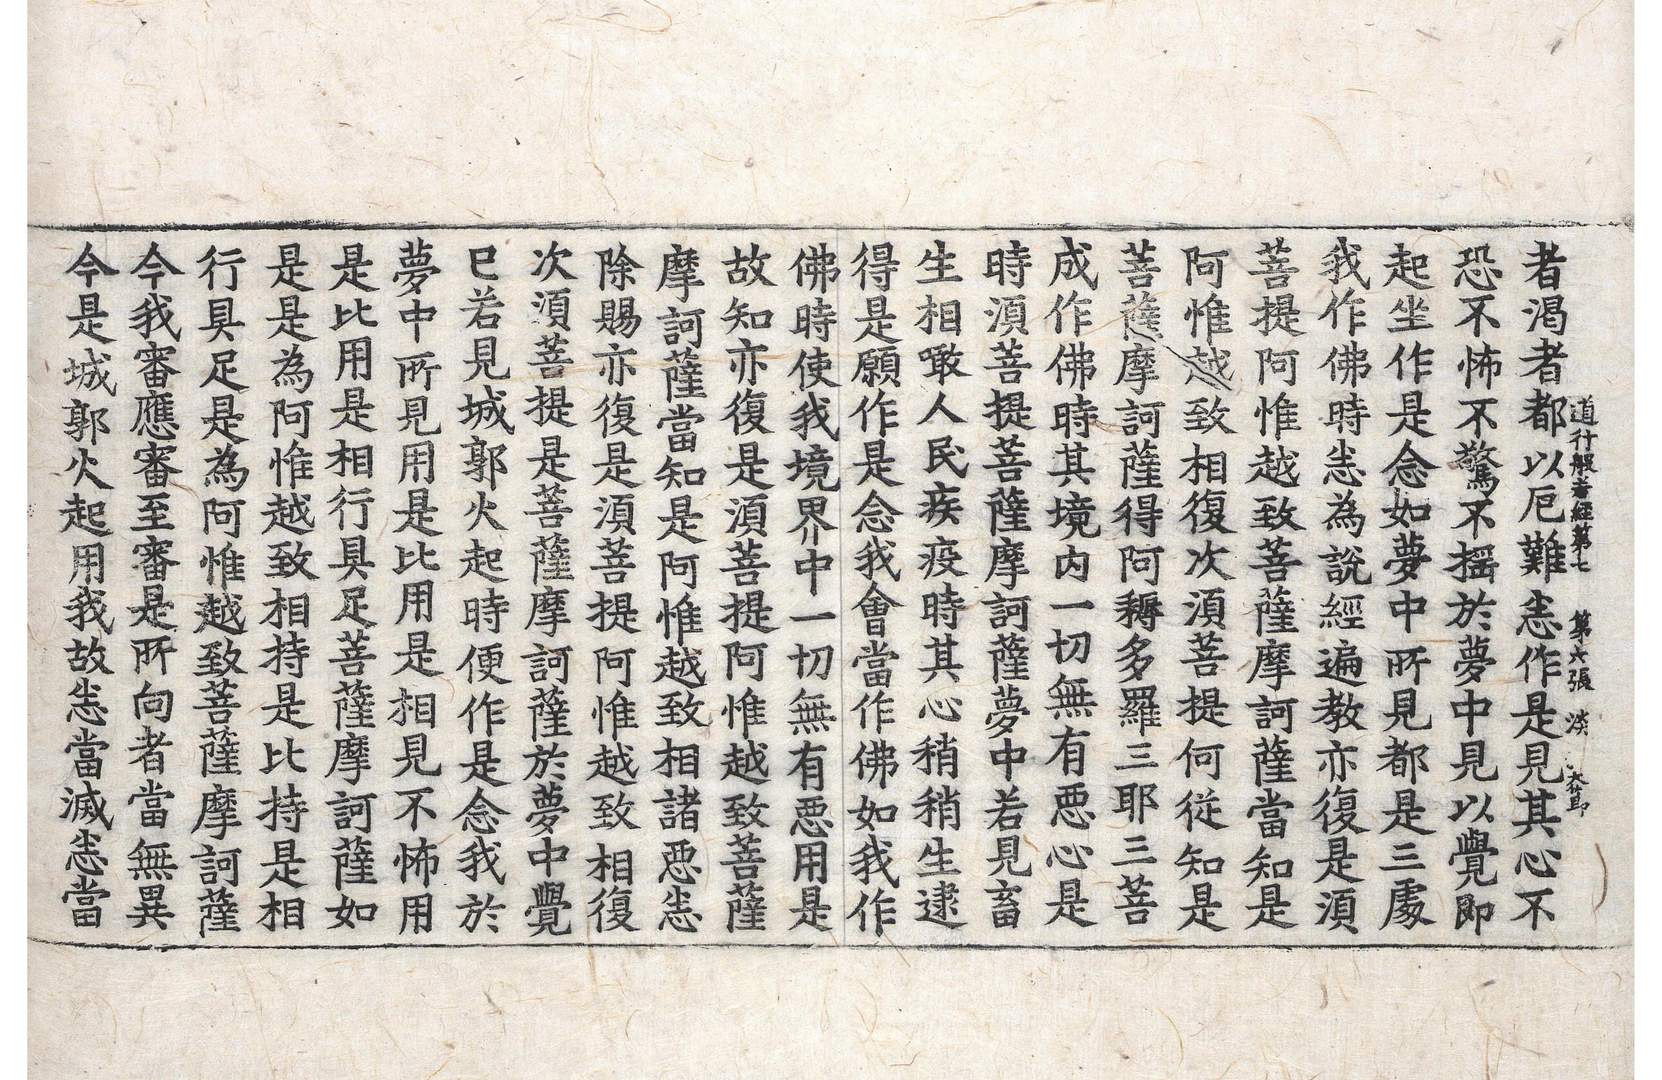 道行般若經第七 第六張 淡
者渴者都以厄難悉作是見其心不
恐不怖不驚不揺於夢中見以覺即
起坐作是念如夢中所見都是三處
我作佛時悉為說經遍教亦復是湏
菩提阿惟越致菩薩摩訶薩當知是
阿惟越致相復次湏菩提何從知是
菩薩摩訶薩得阿耨多羅三耶三菩
成作佛時其境內一切無有惡心是
時湏菩提菩薩摩訶薩夢中若見畜
生相噉人民疾疫時其心稍稍生逮
得是願作是念我會當作佛如我作
佛時使我境界中一切無有惡用是
故知亦復是湏菩提阿惟越致菩薩
摩訶薩當知是阿惟越致相諸惡悉
除賜亦復是湏菩提阿惟越致相復
次湏菩提是菩薩摩訶薩於夢中覺
已若見城郭火起時便作是念我於
夢中所見用是比用是相見不怖用
是比用是相行具足菩薩摩訶薩如
是是為阿惟越致相持是比持是相
行具足是為阿惟越致菩薩摩訶薩
今我審應審至審是所向者當無異
今是城郭火起用我故悉當滅悉當